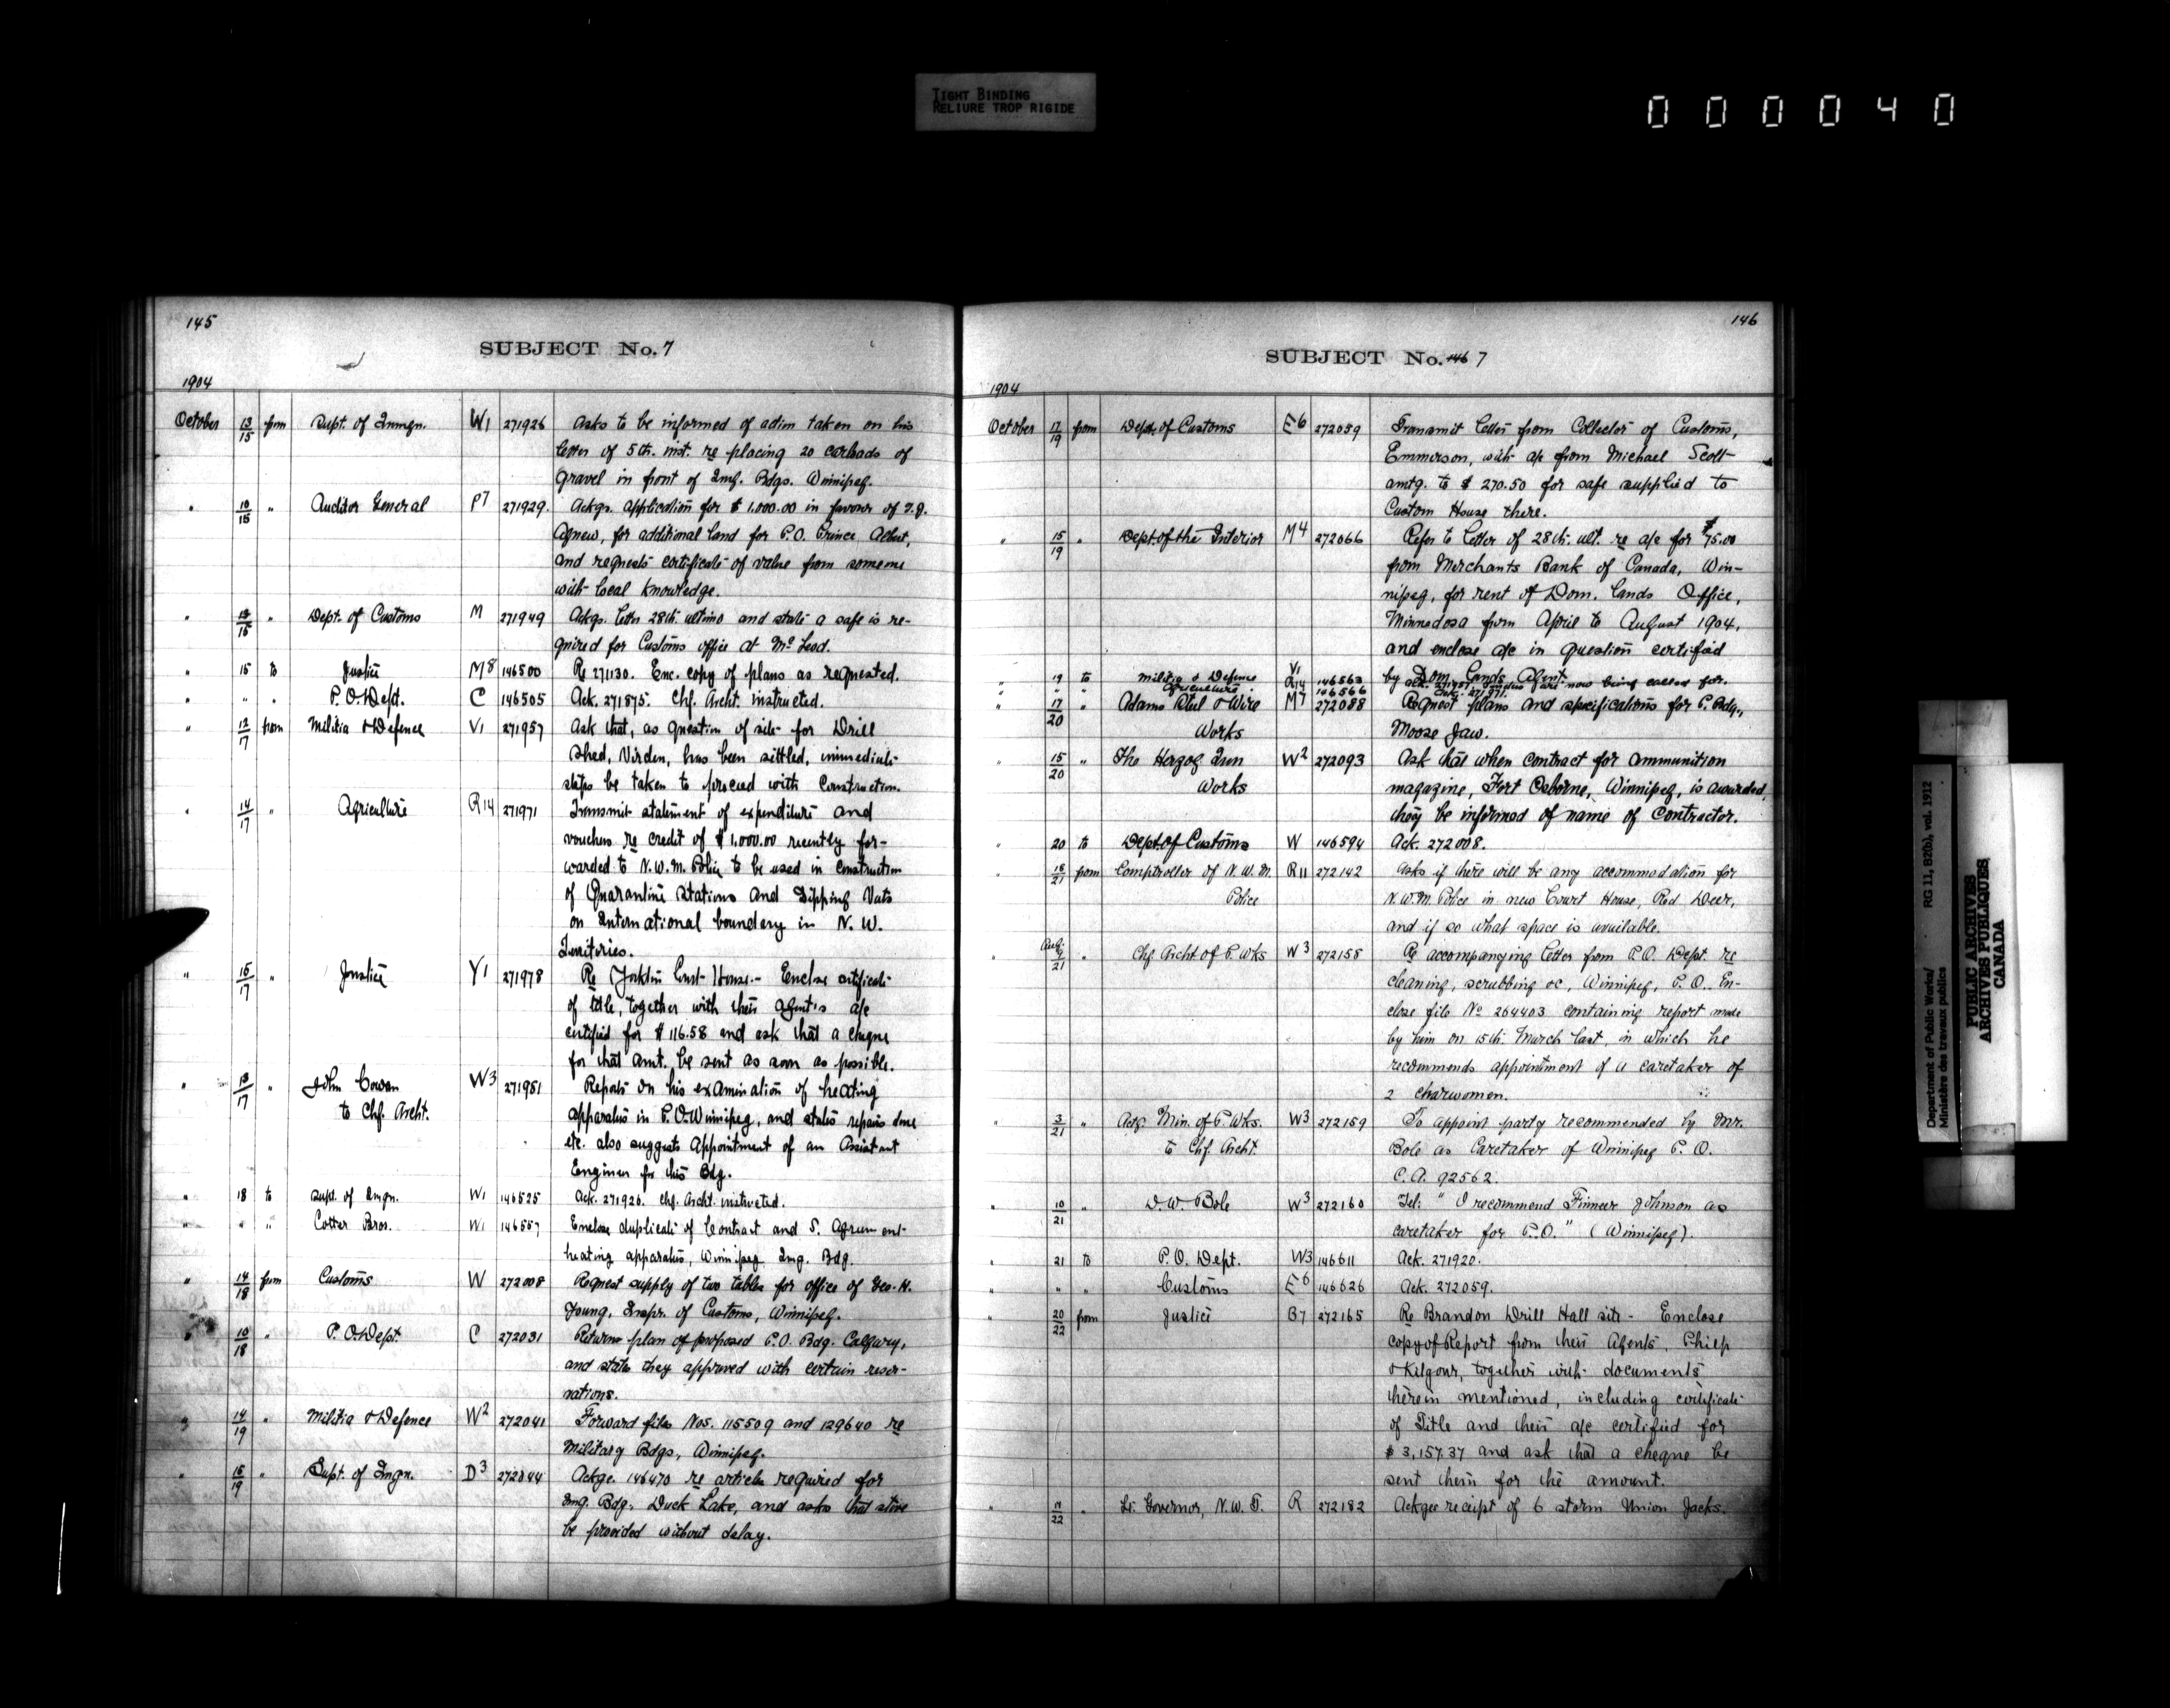 TIGHT BINDING
RELIURE TROP RIGIDE
000040
145
SUBJECT No. 7
1904
October 13/15 from Supt. of Immgn. W1 271926 Asks to be informed of action taken on his
letter of 5th. inst. re placing 20 carloads of
gravel in front of Img. Bdgs. Winnipeg.
" 10/15 " Auditor General P7 271929. Ackgs. application for $1,000.00 in favour of T.J.
Agnew, for additional land for P.O. Prince Albert,
and requests certificate of value from someone
with local knowledge.
" 13/15 " Dept. of Customs M 271949 Ackgs. letter 28th. ultimo and state a safe is re-
quired for Customs office at McLeod.
" 15 to Justice M8 146500 Re 271130. Enc. copy of plans as requested.
" " " P.O. Dept. C 146505 Ack. 271875. Chf. Archt. instructed.
" 12/17 from Militia & Defence V1 271957 Ask that, as question of site for Drill
Shed, Virden, has been settled, immediate
steps be taken to proceed with construction.
" 14/17 " Agriculture R14 271971 Transmit statement of expenditure and
vouchers re credit of $1,000.00 recently for-
warded to N.W.M. Police to be used in construction
of Quarantine Stations and Dipping Vats
on International boundary in N.W.
Territories.
" 15/17 " Justice Y1 271978 Re Yorkton Court House.- Enclose certificate
of title, together with their agent's a/c
certified for $116.58 and ask that a cheque
for that amt. be sent as soon as possible.
" 13/17 " John Cowan W3 271981 Reports on his examination of heating
to Chf. Archt. apparatus in P.O. Winnipeg, and states repairs done
etc. also suggests Appointment of an Assistant
Engineer for this Bdg.
" 18 to Supt. of Imgn. W1 146525 Ack. 271926. Chf. Archt. instructed.
" " " Cotter Bros. W1 146557 Enclose duplicate of Contract and S. Agreement
heating apparatus, Winnipeg Img. Bdg.
" 14/18 from Customs W 272008 Request supply of two tables for office of Geo. H.
Young, Inspr. of Customs, Winnipeg.
" 10/18 " P.O. Dept. C 272031 Return plan of proposed P.O. Bdg. Calgary,
and state they approved with certain reser-
vations.
" 14/19 " Militia & Defence W2 272041 Forward files Nos. 115509 and 129640 re
Military Bdgs, Winnipeg.
" 15/19 " Supt. of Imgn. D3 272044 Ackge. 146470 re articles required for
Img. Bdg. Duck Lake, and asks that stove
be provided without delay.
146
SUBJECT No. 146 7
1904
October 17/19 from Dept. of Customs E6 272059 Transmit letter from Collector of Customs,
Emmerson, with a/c from Michael Scott
amtg. to $270.50 for safe supplied to
Custom House there.
" 15/19 " Dept of the Interior M4 272066 Refer to letter of 28th. ult. re a/c for $75.00
from Merchants Bank of Canada, Win-
nipeg, for rent of Dom. Lands Office,
Minnedosa from April to August 1904,
and enclose a/c in question certified
by Dom. Lands Agent.
" 19 to Militia & Defence V1 146563 Ack. 271957. Tenders are now being called for.
" " " Agriculture R14 146566 Ack. 271971.
" 17/20 " Adams Steel & Wire M7 272088 Request plans and specifications for P. Bdg.,
Works Moose Jaw.
" 15/20 " The Herzog Iron W2 272093 Ask that when contract for ammunition
Works magazine, Fort Osborne, Winnipeg, is awarded,
they be informed of name of Contractor.
" 20 to Dept of Customs W 146594 Ack. 272008.
" 18/21 from Comptroller of N.W.M. R11 272142 Asks if there will be any accommodation for
Police N.W.M. Police in new Court House, Red Deer,
and if so what space is available.
" 21 " Chf Archt of P. Wks W3 272158 Re accompanying letter from P.O. Dept. re
cleaning, scrubbing &c, Winnipeg, P.O. En-
close file No 264403 containing report made
by him on 15th. March last, in which he
recommends appointment of a caretaker of
2 charwomen.
" 3/21 " Actg. Min. of P. Wks. W3 272159 To appoint party recommended by Mr.
to Chf. Archt. Bole as Caretaker of Winnipeg P.O.
C.A. 92562.
" 10/21 " D.W. Bole W3 272160 Tel: "I recommend Finneer Johnson as
caretaker for P.O." (Winnipeg).
" 21 to P.O. Dept. W3 146611 Ack. 271920.
" " " Customs E6 146626 Ack. 272059.
" 20/22 from Justice B7 272165 Re Brandon Drill Hall site - Enclose
copy of Report from their Agents, Philp
& Kilgour, together with documents
therein mentioned, including certificate
of Title and their a/c certified for
$3,157.37 and ask that a cheque be
sent them for the amount.
" 22 " Lt. Governor, N.W.T. R 272182 Ackgee receipt of 6 storm Union Jacks.
Department of Public Works/ RG 11, B2(b), vol. 1912
Ministère des travaux publics
PUBLIC ARCHIVES
ARCHIVES PUBLIQUES
CANADA